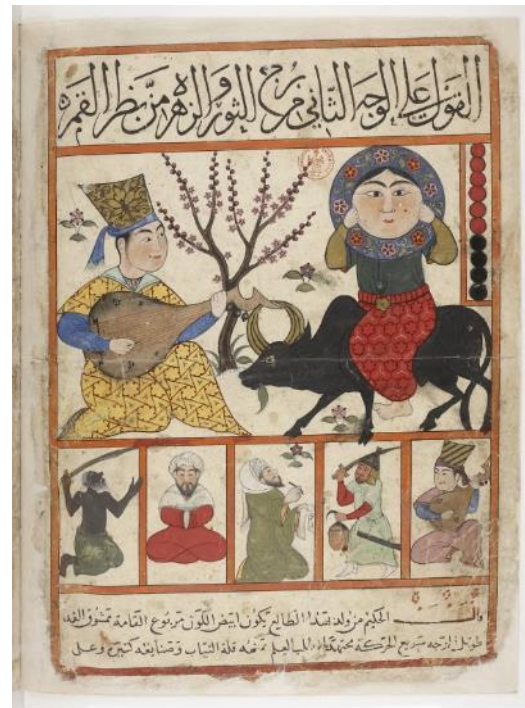 القول على الوجه الثاني من برج الثور والزهره من نظر القمر
الحكيم من ولد بهذا الطالع يكون ابيض اللون مربوع القامة ممشوق القد
طويل الوجه سريع الحركة العلم قلة الثياب وصنايعه كثيرة وعلى